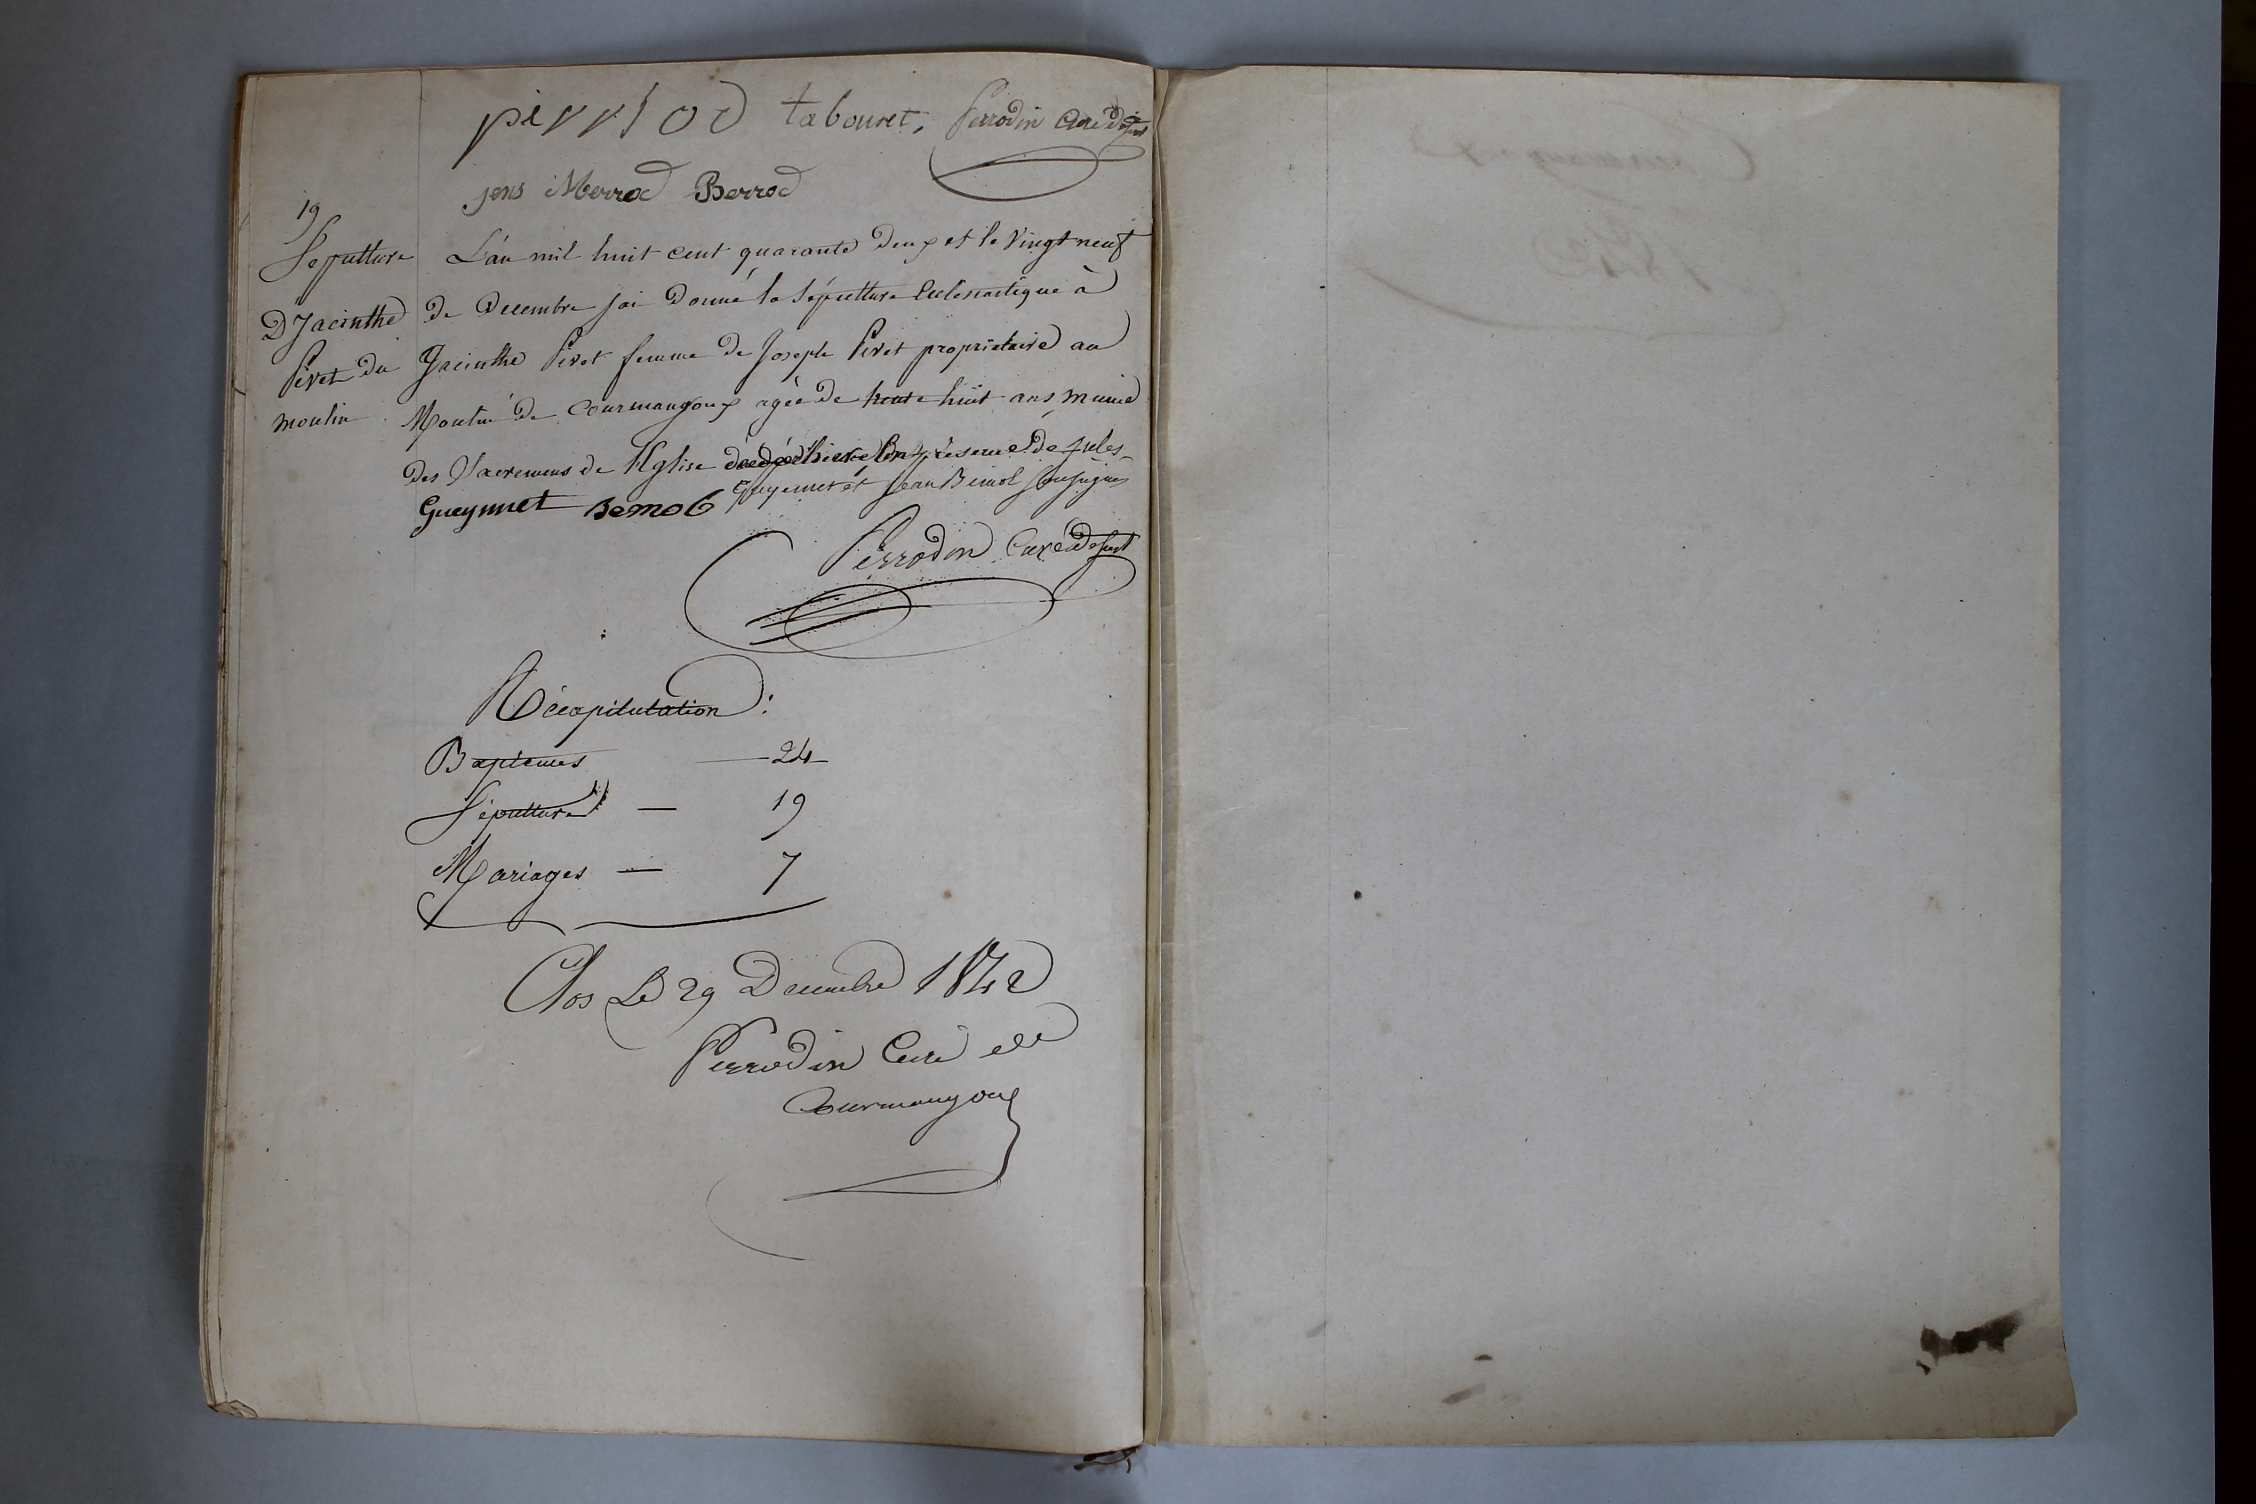 tabouret. Perrodin Curé desst
jens Merrod Berrod
19
Sépulture
D'Jacinthe
Pivet du
moulin
L'an mil huit cent quarante deux et le vingt neuf
de Decembre jai donné la sépulture Eclesiastique à
Jacinthe Pivet femme de Joseph Pivet propriétaire au
Moulin de Courmangoux agée de trente huit ans munie
des Sacremens de l'Eglise présence de jules
Gueynnet Bemol Gueynnet et Jean Bemol soussignés
Perrodin Curé desst
Récapitulation :
Baptemes — 24
Sépultures — 19
Mariages — 7
Clos Le 29 Decembre 1842
Perrodin Curé de
Courmangoux